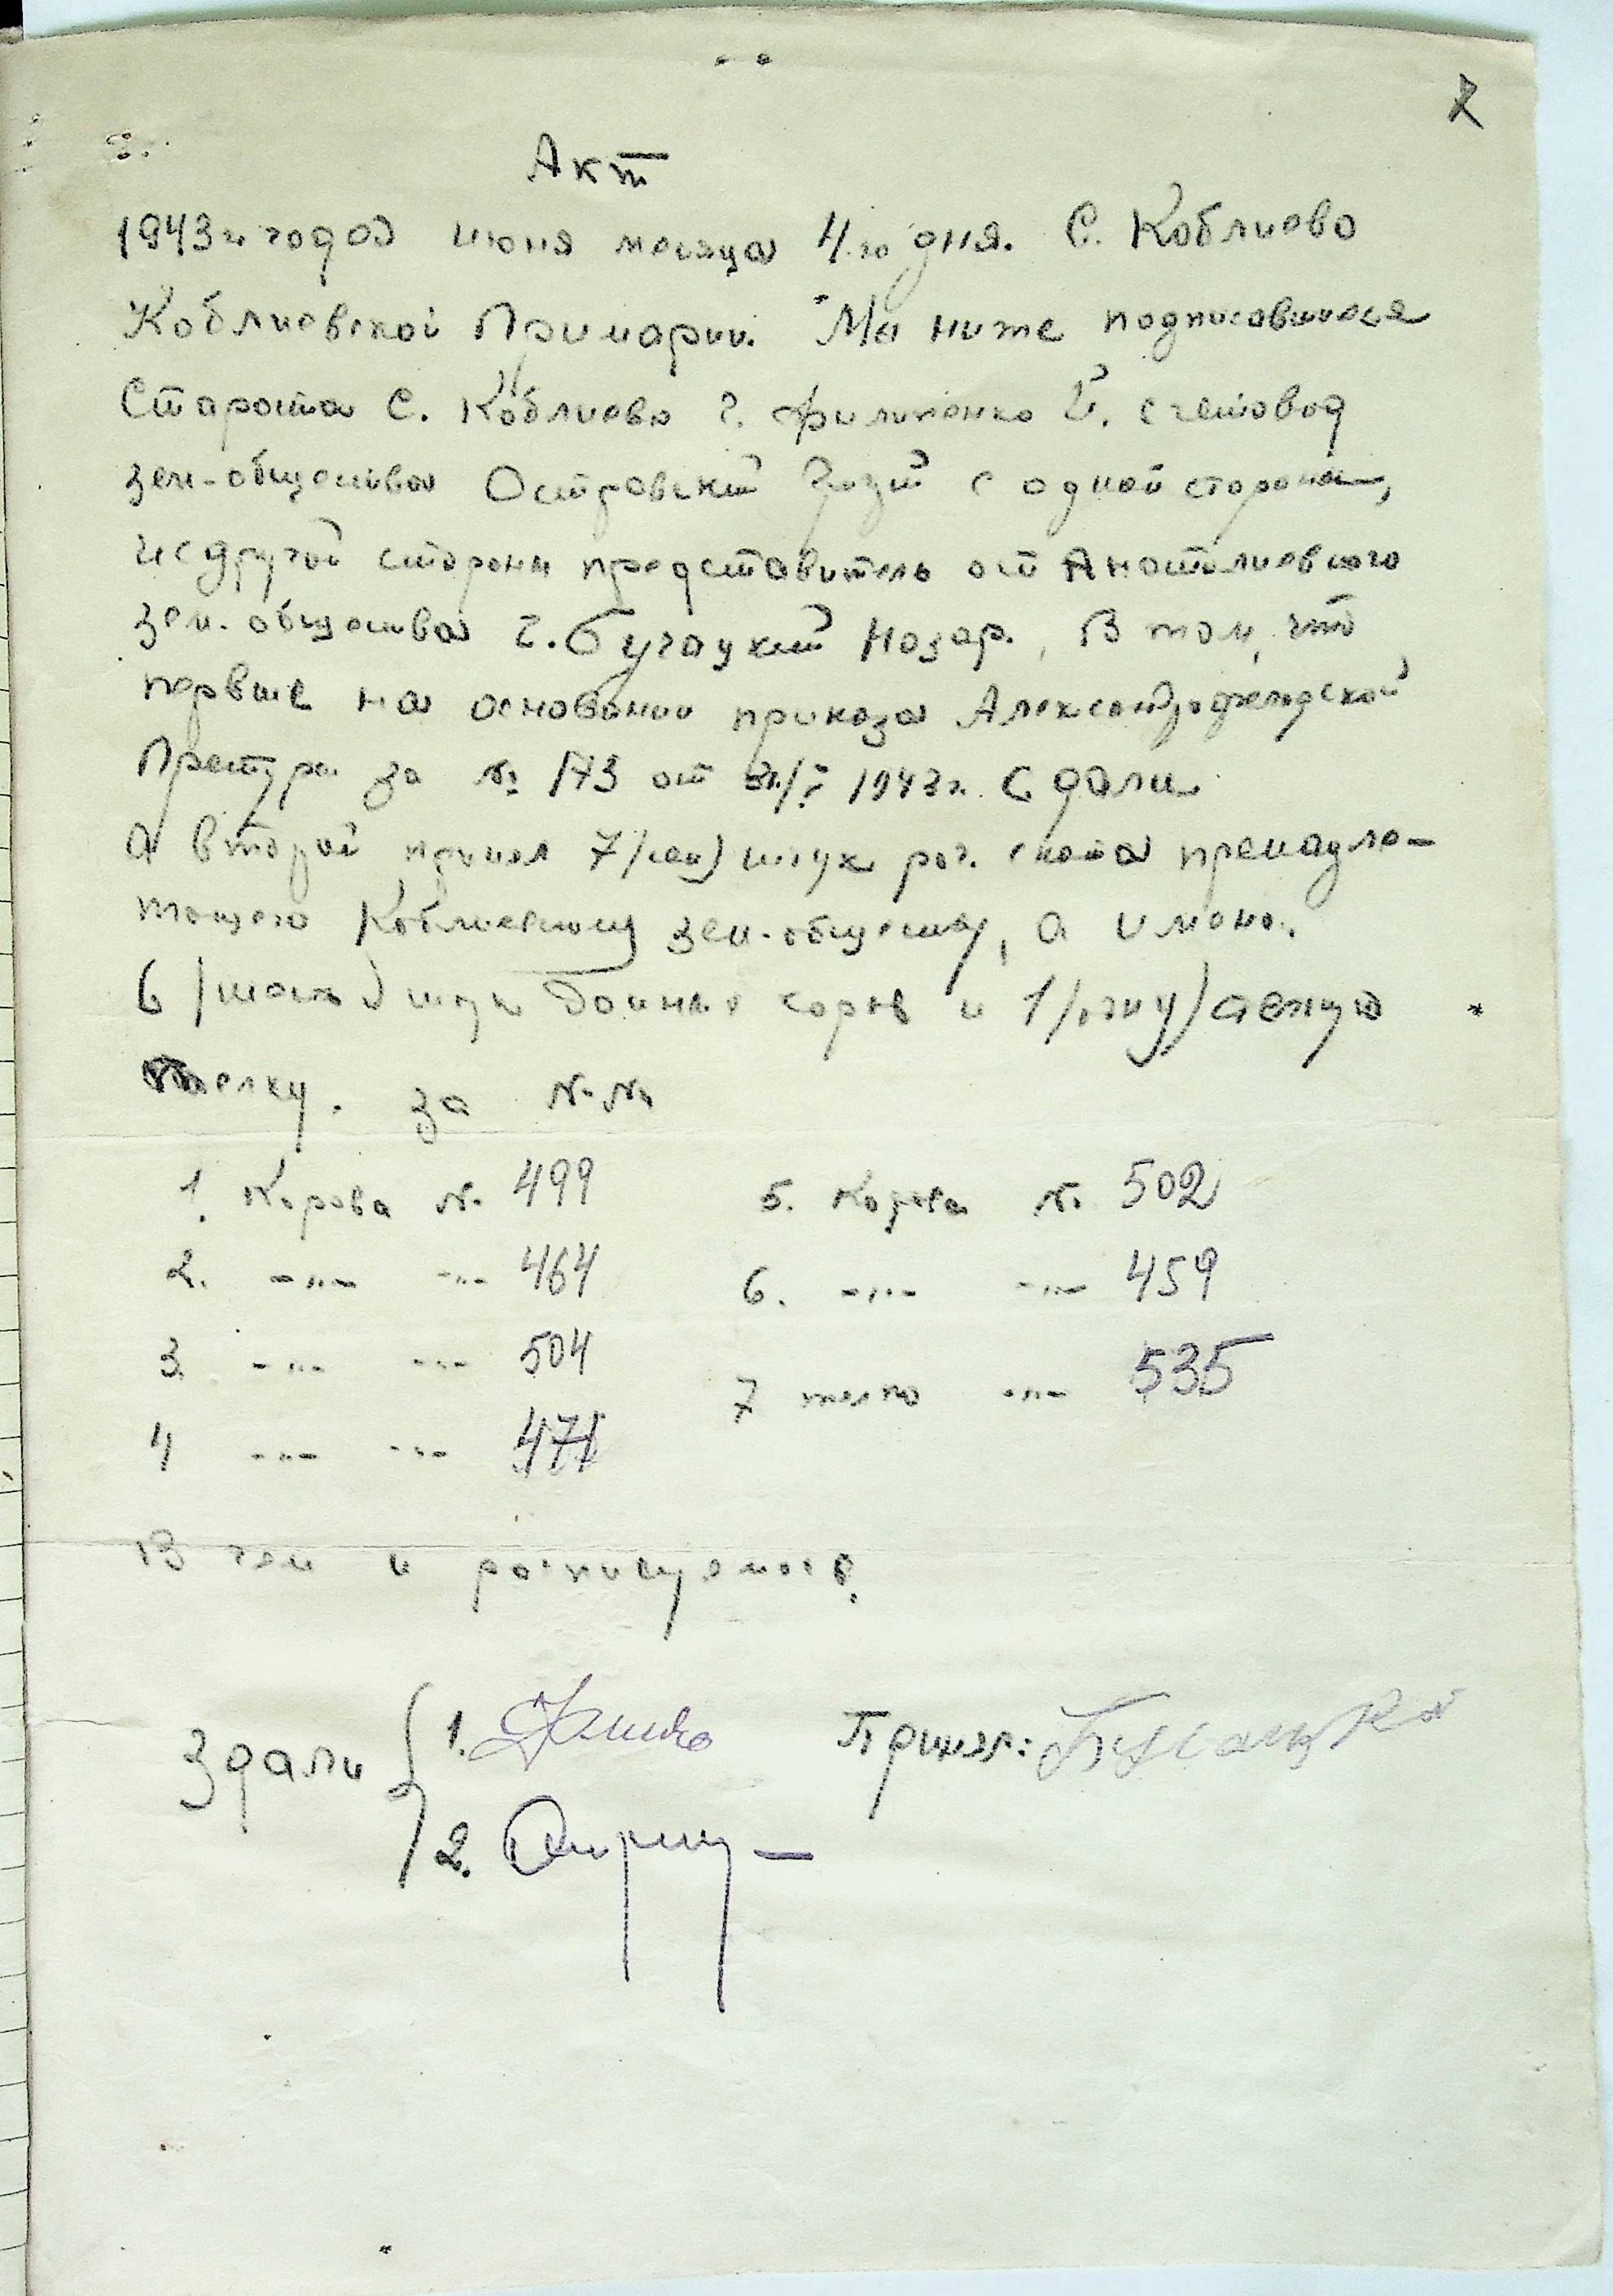 7
Акт
1943 года июня месяца 4го дня. С. Коблиево
Коблиевской Примарии. Мы ниже подписавшиеся
Староста С. Коблиево г. Филипенко счетовод
зем-общества Островский с одной стороны,
и с другой стороны представитель от Анатолиевского
зем. общества г. Бугацкий Назар. В том, что
первые на основании приказа Александрофельдской
Претуры за № 173 от 1943 г. Сдали
а второй принял 7/сем) штук рог. скота пренадле-
жащего Коблиевскому зем-обществу, а имено.
6 /шесть) штук доиных коров и 1/одну)
телку. за №№
1. Корова № 499 5. Корова № 502
2. -„- -„- 464 6. -„- -„- 459
3 -„- -„- 504
7 телка -„- 535
4 -„- -„- 471
В чем и росписуемось.
Здали 1. Принял:
2.